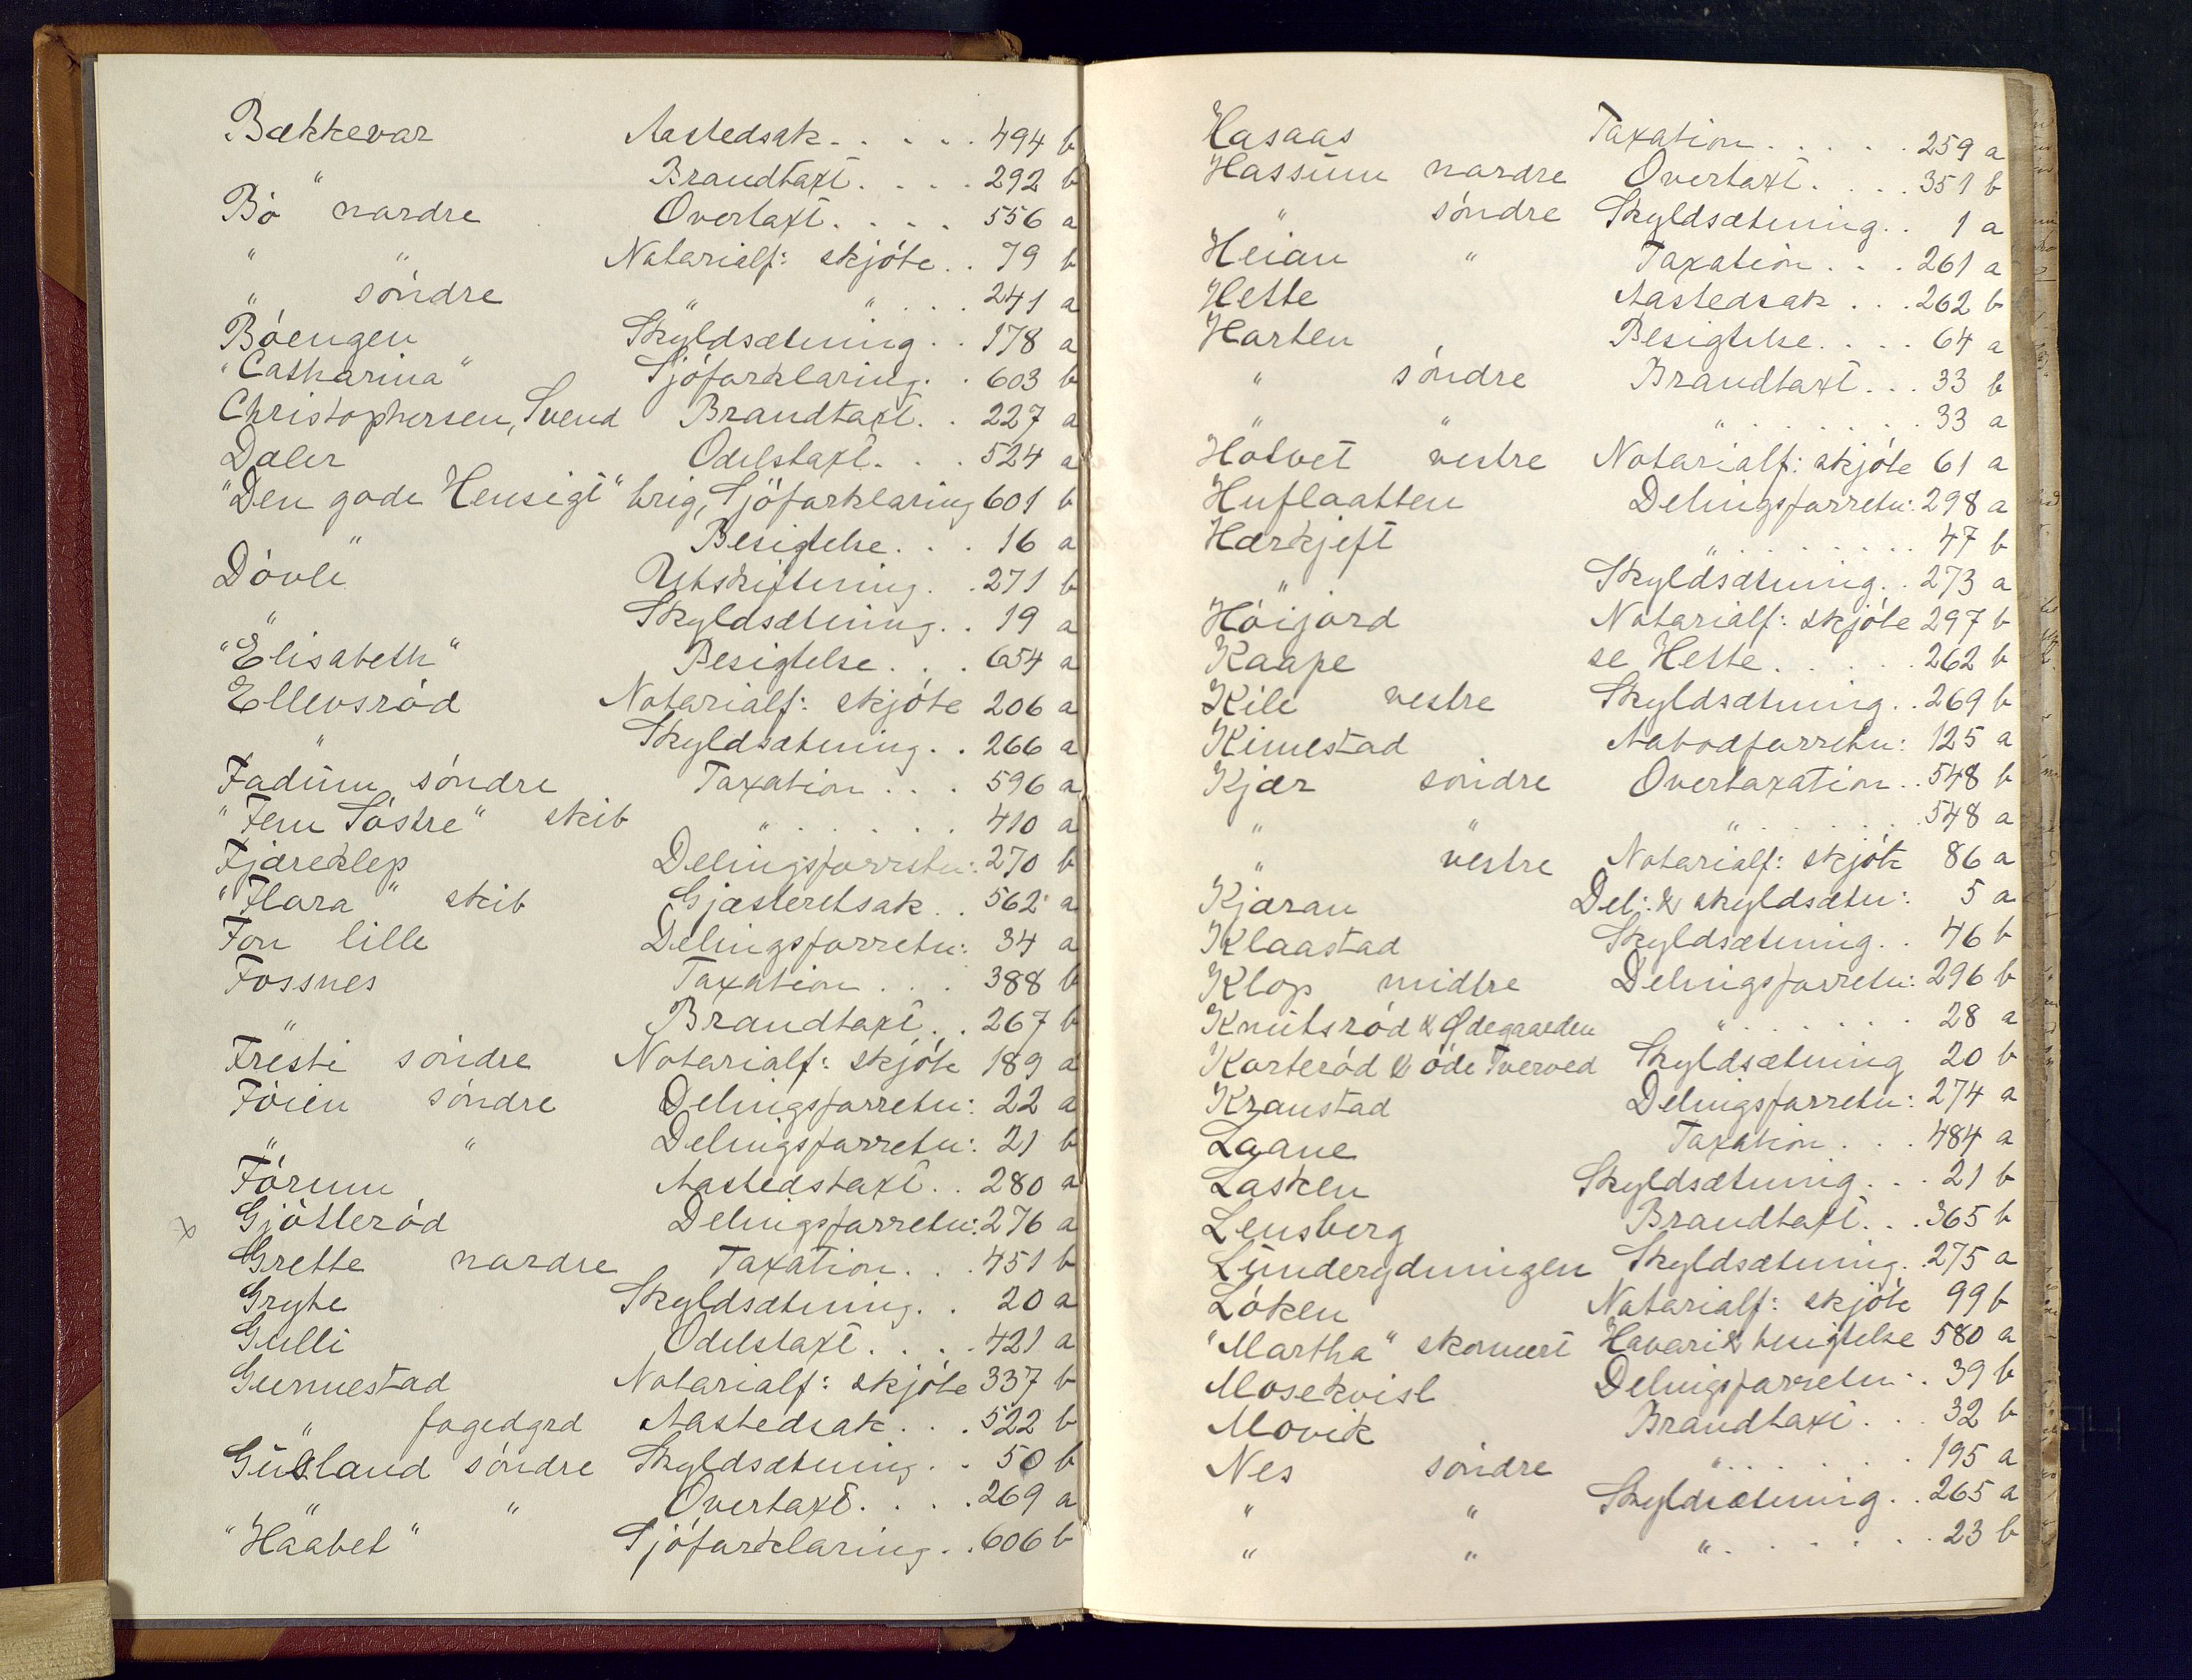 Bækkevar Aastedsak. . . . . 494 b
" Brandtaxt. . . . 292 b
Bö nordre Overtaxt. . . . 556 a
" " Notarialf: skjöte. . 79 b
" söndre " " . . . 241 a
Böengen Skyldsætning. . 178 a
"Catharina" Sjöforklaring. . 603 b
Christophersen, Svend Brandtaxt. . 227 a
Daler Odelstaxt. . . 524 a
"Den gode Hensigt" brig, Sjöforklaring 601 b
" Besigtelse. . . 16 a
Dövle Utskiftning. . 271 b
" Skyldsætning. . 19 a
"Elisabeth" Besigtelse. . . 654 a
Ellevsröd Notarialf: skjöte 206 a
" Skyldsætning. . 266 a
Fadum söndre Taxation . . . 596 a
"Fem Söstre" skib " . . . . . . 410 a
Fjæreklep Delingsforretn: 270 b
"Flora" skib Gjæsteretsak. . 562 a
Fon lille Delingsforretn: 34 a
Fossnes Taxation . . . 388 b
" Brandtaxt. . 267 b
Fresti söndre Notarialf: skjöte 189 a
Föien söndre Delingsforretn: 22 a
" " Delingsforretn: 21 b
Förum Aastedstaxt. . 280 a
x Gjötteröd Delingsforretn: 276 a
Grette nordre Taxation. . . 451 b
Gryte Skyldsætning. . 20 a
Gulli Odelstaxt. . . . 421 a
Gunnestad Notarialf: skjöte 337 b
" fogedgrd Aastedsak. . . 522 b
Gusland söndre Skyldsætning. . 50 b
" " Overtaxt. . . . 269 a
"Haabet" Sjöforklaring. . 606 b
Hasaas Taxation. . . . . 259 a
Hassum nordre Overtaxt. . . . 351 b
" söndre Skyldsætning. . 1 a
Heian " Taxation. . . 261 a
Hette Aastedsak . . . 262 b
Horten Besigtelse. . . . 64 a
" söndre Brandtaxt. . . 33 b
" " " . . . . . . . 33 a
Hotvet vestre Notarialf: skjöte 61 a
Huflaatten Delingsforretn: 298 a
Hærkjeft " . . . . . . . . 47 b
" Skyldsætning. . 273 a
Höijord Notarialf: skjöte 297 b
Kaape se Hette. . . . . 262 b
Kile vestre Skyldsætning. . 269 b
Kimestad Aabodforretn: 125 a
Kjær söndre Overtaxation. . 548 b
" " " . . . . . . 548 a
" vestre Notarialf: skjöte 86 a
Kjæran Del: & skyldsætn: 5 a
Klaastad Skyldsætning. . 46 b
Klop midtre Delingsforretn: 296 b
Knutsröd & Ødegaarden " . . . . . . . 28 a
Korteröd & öde Tverved Skyldsætning 20 b
Kraustad Delingsforretn: 274 a
Laane Taxation. . . 484 a
Lasken Skyldsætning. . . 21 b
Lensberg Brandtaxt. . . 365 b
Lunderydningen Skyldsætning. . 275 a
Löken Notarialf: skjöte 99 b
"Martha" skonnert Havari & besigtelse 580 a
Mosekvisl Delingsforretn: . 39 b
Movik Brandtaxt. . . 32 b
Nes söndre " . . . . . . . 195 a
" " Skyldsætning. . 265 a
" " " . . . . . . . 23 b